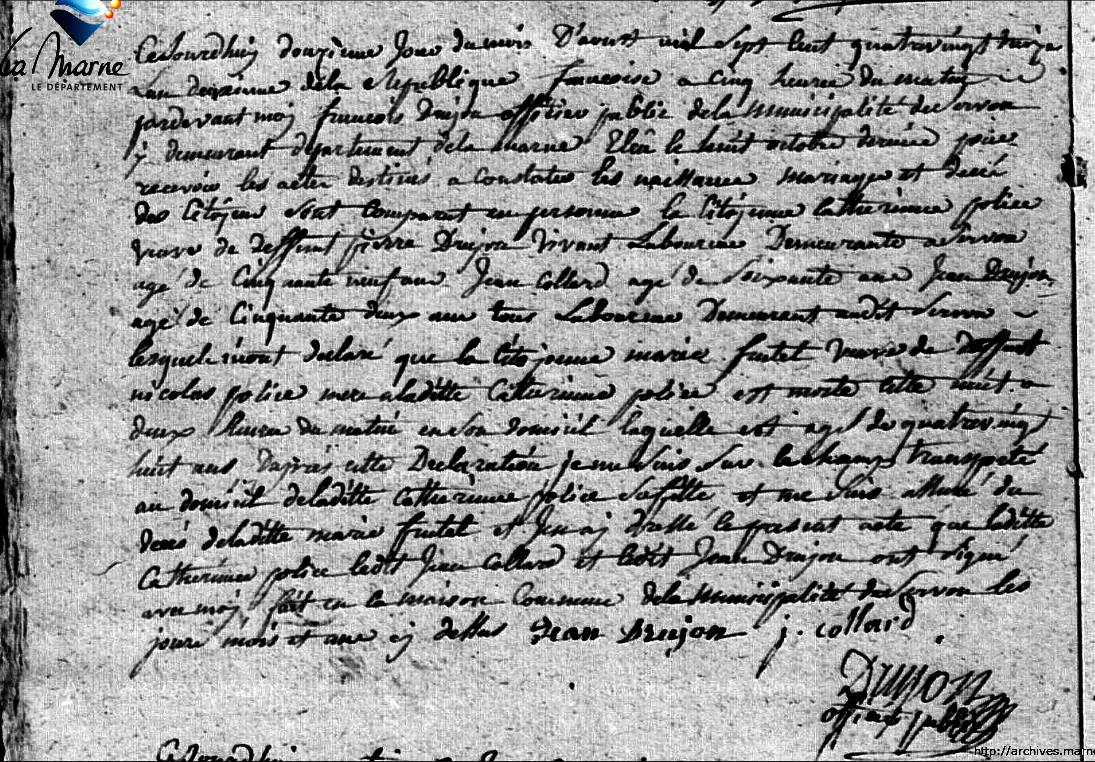 La Marne
LE DÉPARTEMENT
Cejourdhuy douzième Jour du mois D'aoust mil Sept Cent quatrevingt treize
Lan deuxieme dela Republique francoise a Cinq heure du matin
pardevant moy francois Drujon officier public dela municipalité de Servon
y demeurant departement dela marne Elu le huit octobre dernier pour
recevoir les actes destinés a constater les naissance mariage et decé
des Citoyen sont comparut en personne la Citoyenne Catherinne police
veuve de deffunt pierre Drujon vivant Laboureur Demeurante a Servon
agé de Cinquante neuf ans Jean Collard agé de soixante ans Jean Drujon
agé de Cinquante deux ans tous Laboureur Demeurant audit Servon
lesquele mont declaré que la Citoyenne marie frutel veuve de deffunt
nicolas police mere a laditte Catherinne police est morte cette nuit a
deux heure du matin en son domicil laquelle est agé de quatrevingt
huit ans Dapràs cette Declaration je me suis sur le champ transporté
au domicil deladitte Catherinne police sa fille et me suis assuré du
decés deladitte marie frutel et Jen ay dressé le present acte que laditte
Catherinne police ledit Jean Collard et ledit Jean Drujon ont signé
avec moy fait en la maison Commune dela municipalité de Servon les
jour mois et ans cy dessus Jean Drujon j. collard
Drujon
officier public
Cejourdhuy
http://archives.marne